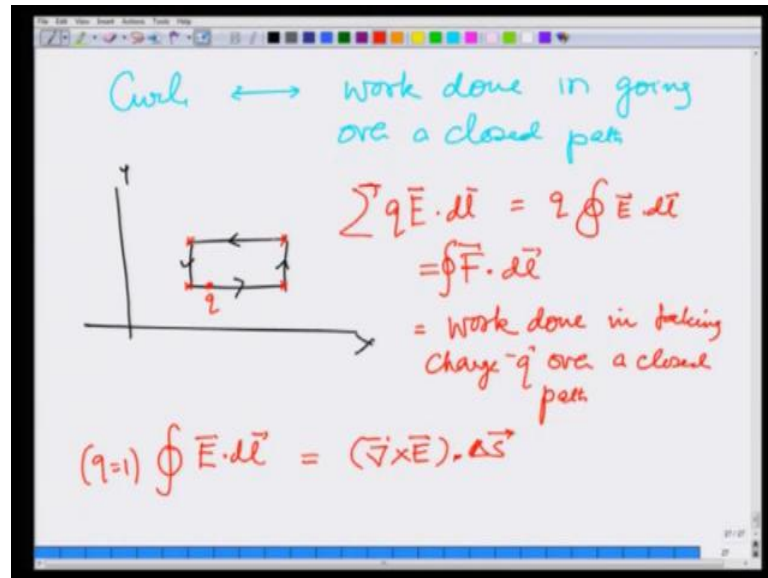 File Edit View Insert Actions Tools Help
Curl ⟷ work done in going
over a closed path
Y
q
∑ q E⃗ · dl⃗ = q ∮ E⃗ · dl⃗
= ∮ F⃗ · dl⃗
= work done in taking
charge - q over a closed
path
(q=1) ∮ E⃗ · dl⃗ = (∇⃗ × E⃗) · Δs⃗
27/27
27